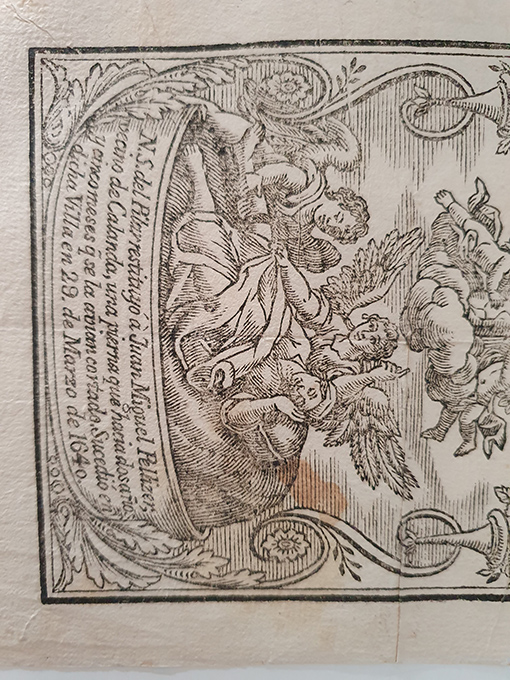 N.S. del Pilar restituyo à Juan Miguel Pellicer,
vecino de Calanda una pierna que havia dos años,
y cinco meses q̃ se la avian cortado. Sucedio en
dicha Villa en 29. de Marzo de 1640.